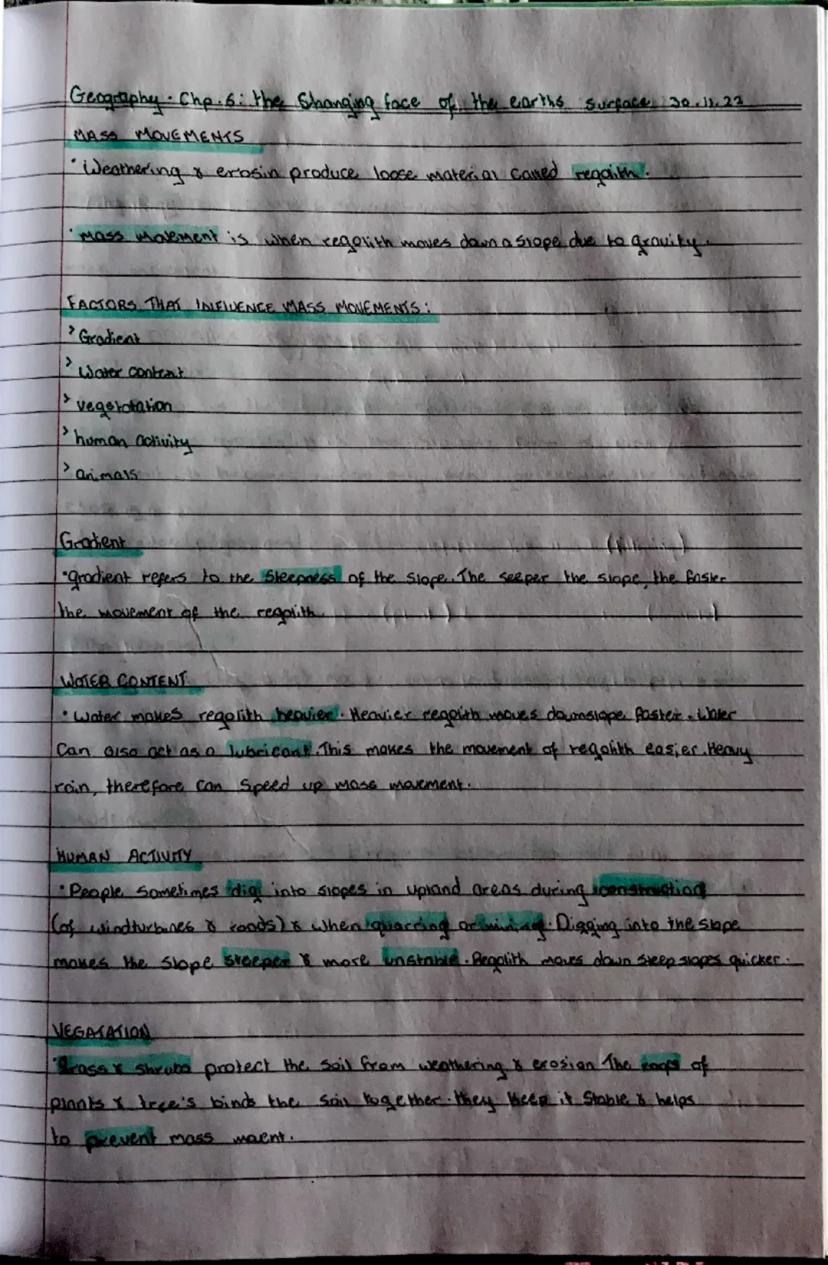 Geography. Chp. 6: the Changing face of the earths surface 30.11.22
MASS MOVEMENTS
• Weathering & erosin produce loose material called regolith.
• Mass Movement is when regolith moves down a slope due to gravity.
FACTORS THAT INFLUENCE MASS MOVEMENTS:
> Gradient
> Water content
> vegetotation
> human activity
> animals
Gradient
• gradient refers to the Steepness of the slope. The seeper the slope, the faster
the movement of the regolith.
WATER CONTENT
• Water makes regolith heavier. Heavier regolith moves downslope faster. Water
Can also act as a lubricant. This makes the movement of regolith easier. Heavy
rain, therefore can speed up mass movement.
HUMAN ACTIVITY
• People sometimes dig into slopes in upland areas during construction
(of windturbines & roads) & when quarring or mining. Digging into the slope
makes the slope steeper & more unstable. Regolith moves down steep slopes quicker.
VEGATATION
• Grass & shrubs protect the soil from weathering & erosion The roots of
plants & tree's binds the soil together. they keep it Stable & helps
to prevent mass maent.